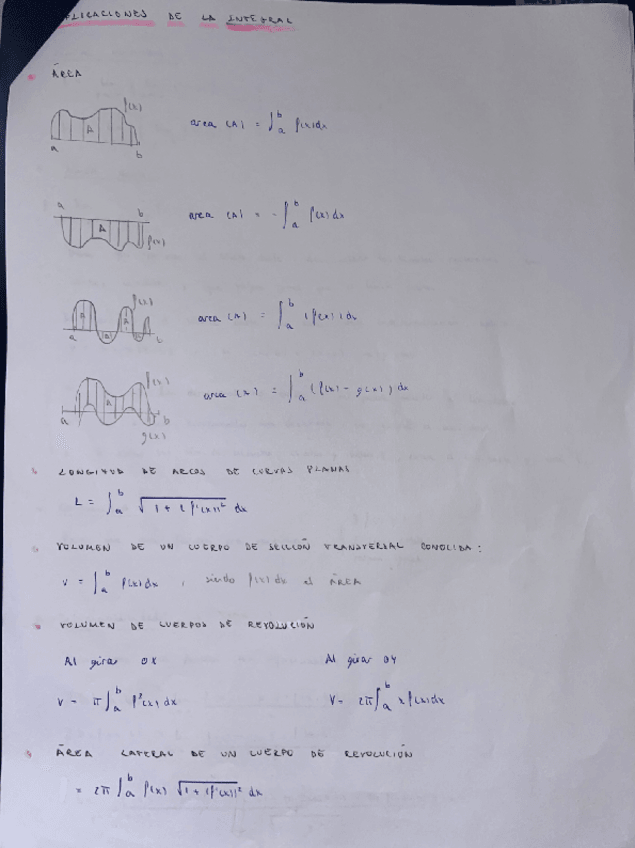 APLICACIONES DE LA INTEGRAL
ÁREA
f(x)
A
a b
area (A) = ∫_a^b f(x)dx
a b
A
f(x)
area (A) = -∫_a^b f(x)dx
f(x)
a b
area (A) = ∫_a^b |f(x)|dx
f(x)
A
a b
g(x)
area (A) = ∫_a^b (f(x) - g(x)) dx
LONGITUD DE ARCOS DE CURVAS PLANAS
L = ∫_a^b √(1 + (f'(x))²) dx
VOLUMEN DE UN CUERPO DE SECCIÓN TRANSVERSAL CONOCIDA:
V = ∫_a^b f(x)dx , siendo f(x)dx el ÁREA
VOLUMEN DE CUERPOS DE REVOLUCIÓN
Al girar OX Al girar OY
V = π∫_a^b f²(x)dx V = 2π∫_a^b x f(x)dx
ÁREA LATERAL DE UN CUERPO DE REVOLUCIÓN
= 2π ∫_a^b f(x) √(1 + (f'(x))²) dx